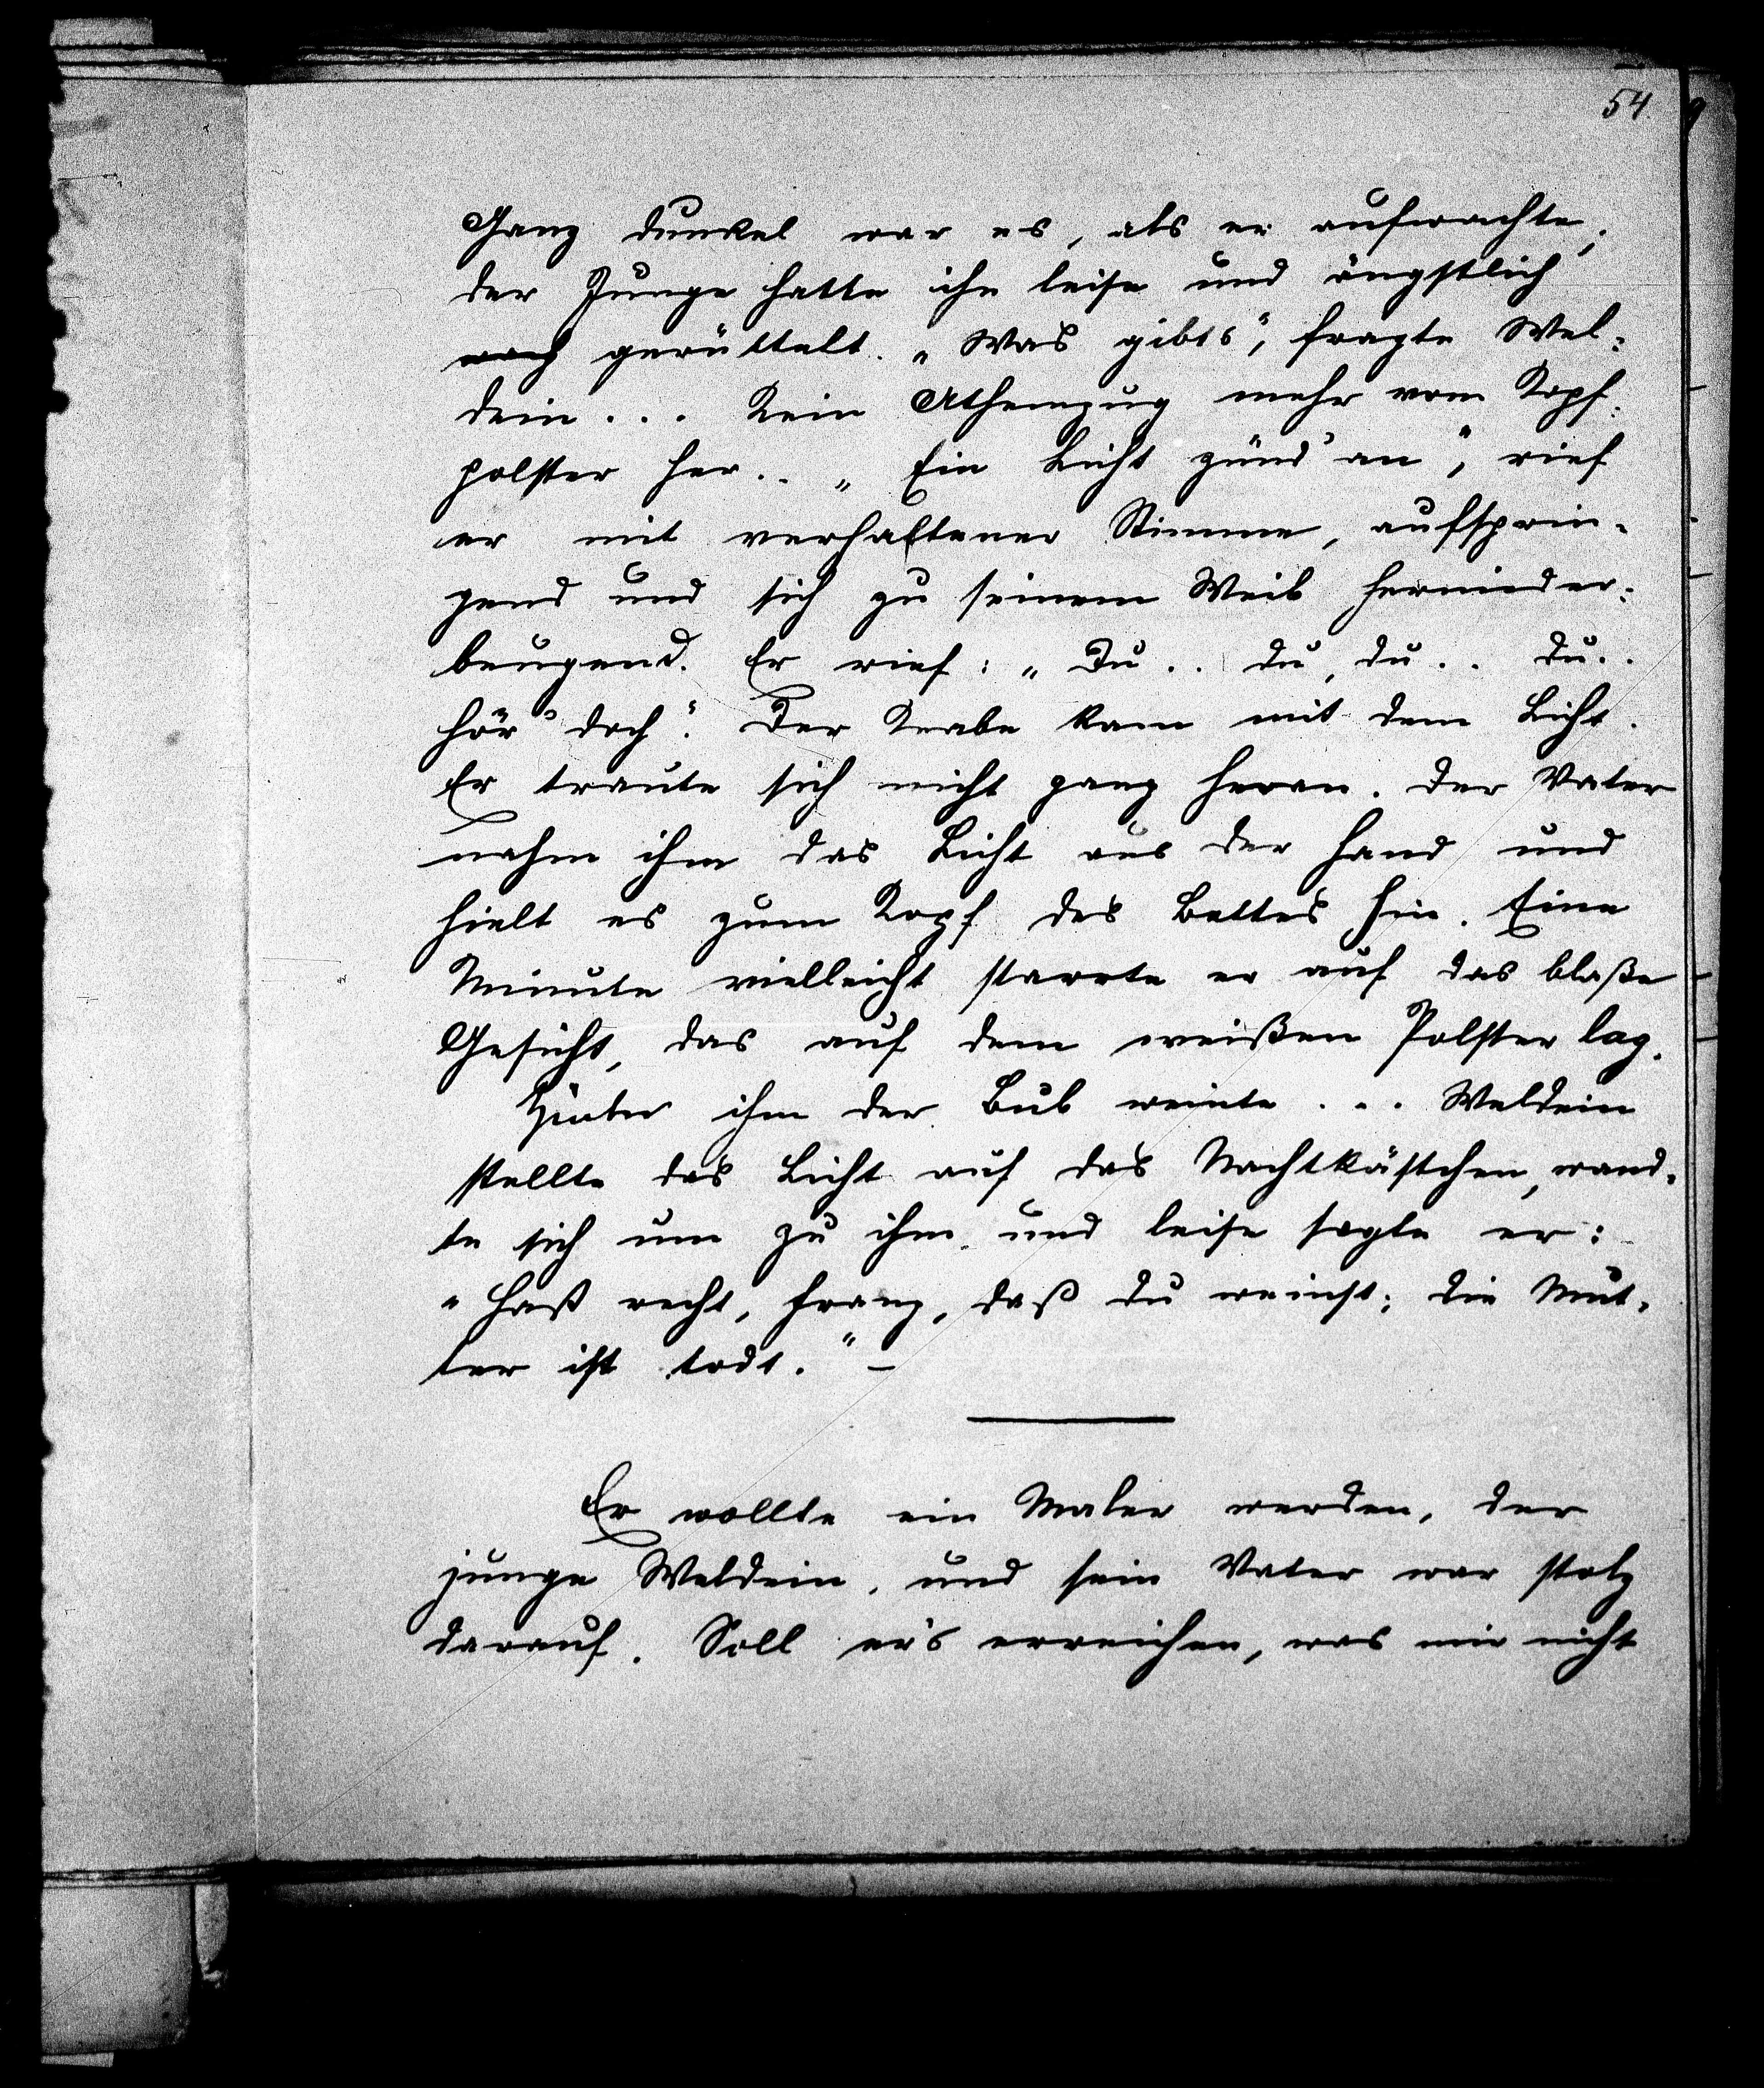 54.
Ganz dunkel war es, als er aufwachte;
der Junge hatte ihn leise und ängstlich
wach gerüttelt. „Was gibts“, fragte Wel-
dein... Kein Athemzug mehr vom Kopf-
polster her.. „Ein Licht zünd' an“, rief
er mit verhaltener Stimme, aufsprin-
gend und sich zu seinem Weib hernieder-
beugend. Er rief: „Du.. du, du.. du..
hör' doch“. Der Knabe kam mit dem Licht.
Er traute sich nicht ganz heran. Der Vater
nahm ihm das Licht aus der Hand und
hielt es zum Kopf des Bettes hin. Eine
Minute vielleicht starrte er auf das blaße
Gesicht, das auf dem weißen Polster lag.
Hinter ihm der Bub weinte... Weldein
stellte das Licht auf das Nachtkästchen, wand-
te sich um zu ihm und leise sagte er:
„Haßt recht, Franz, daß du weinst; die Mut-
ter ist todt.“ –
Er wollte ein Maler werden, der
junge Weldein, und sein Vater war stolz
darauf. Soll er's erreichen, was mir nicht